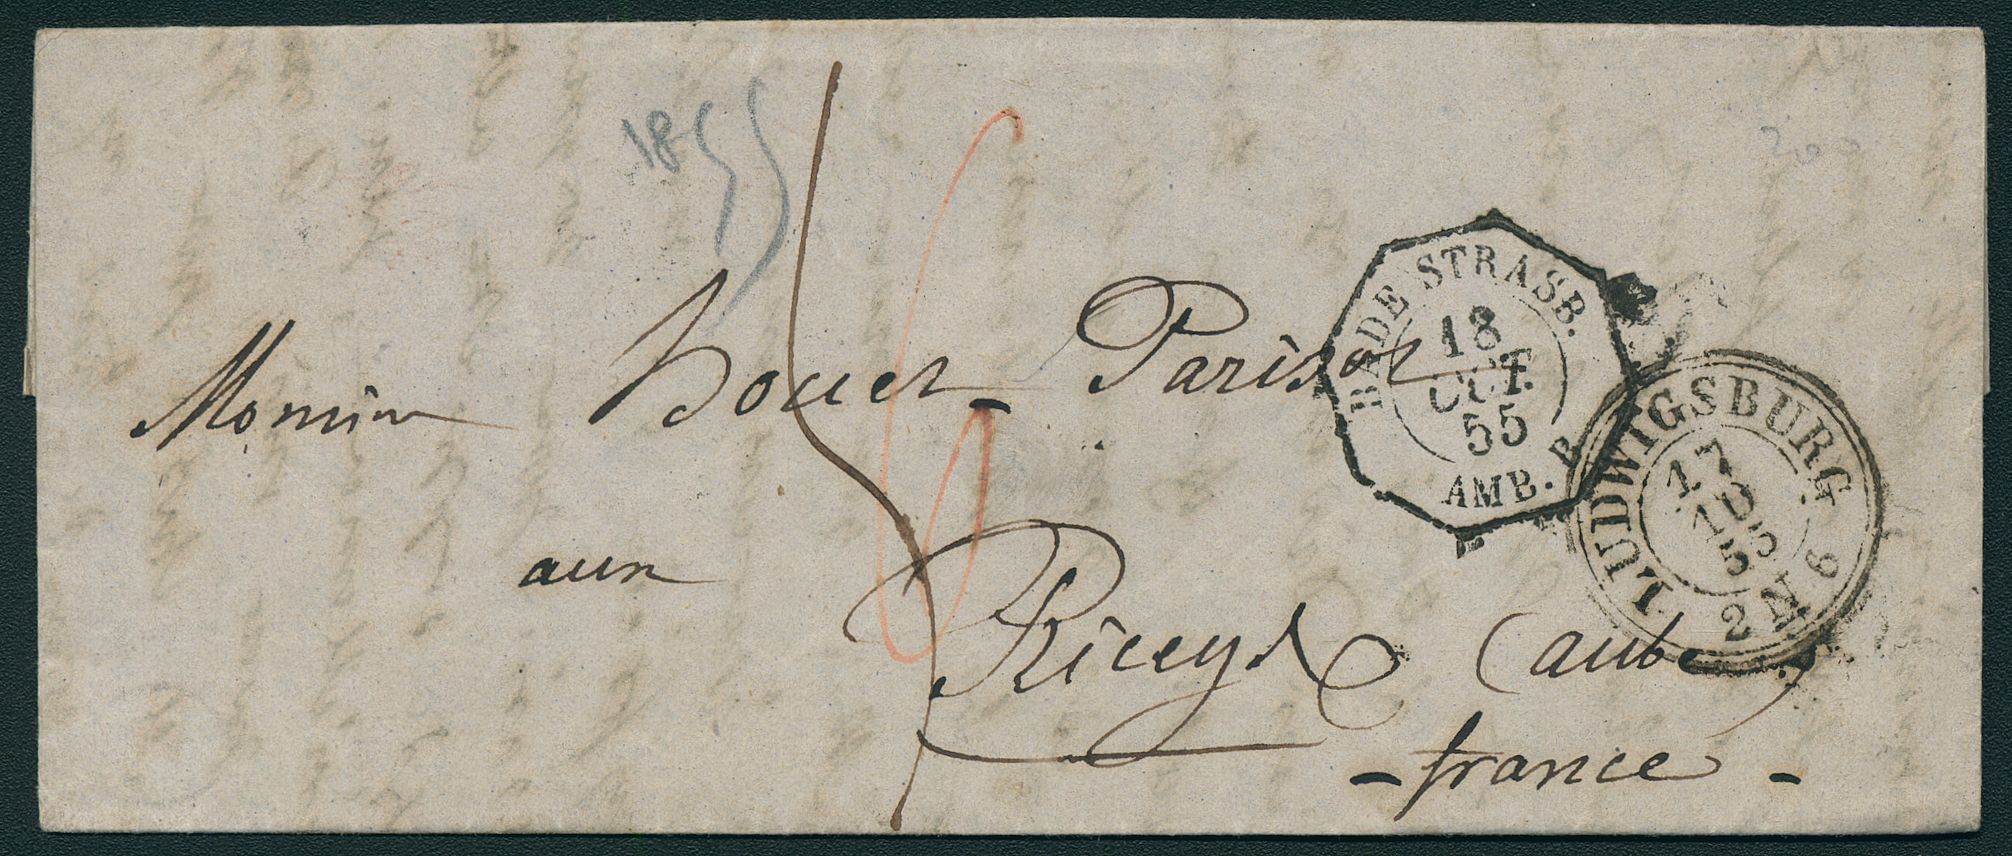 1855
Monsieur Bouer Parisot
aux
Riceys (aube)
- france -
BADE STRASB.
18
OCT.
55
AMB. B
LUDWIGSBURG
17
10
55
2 N 6